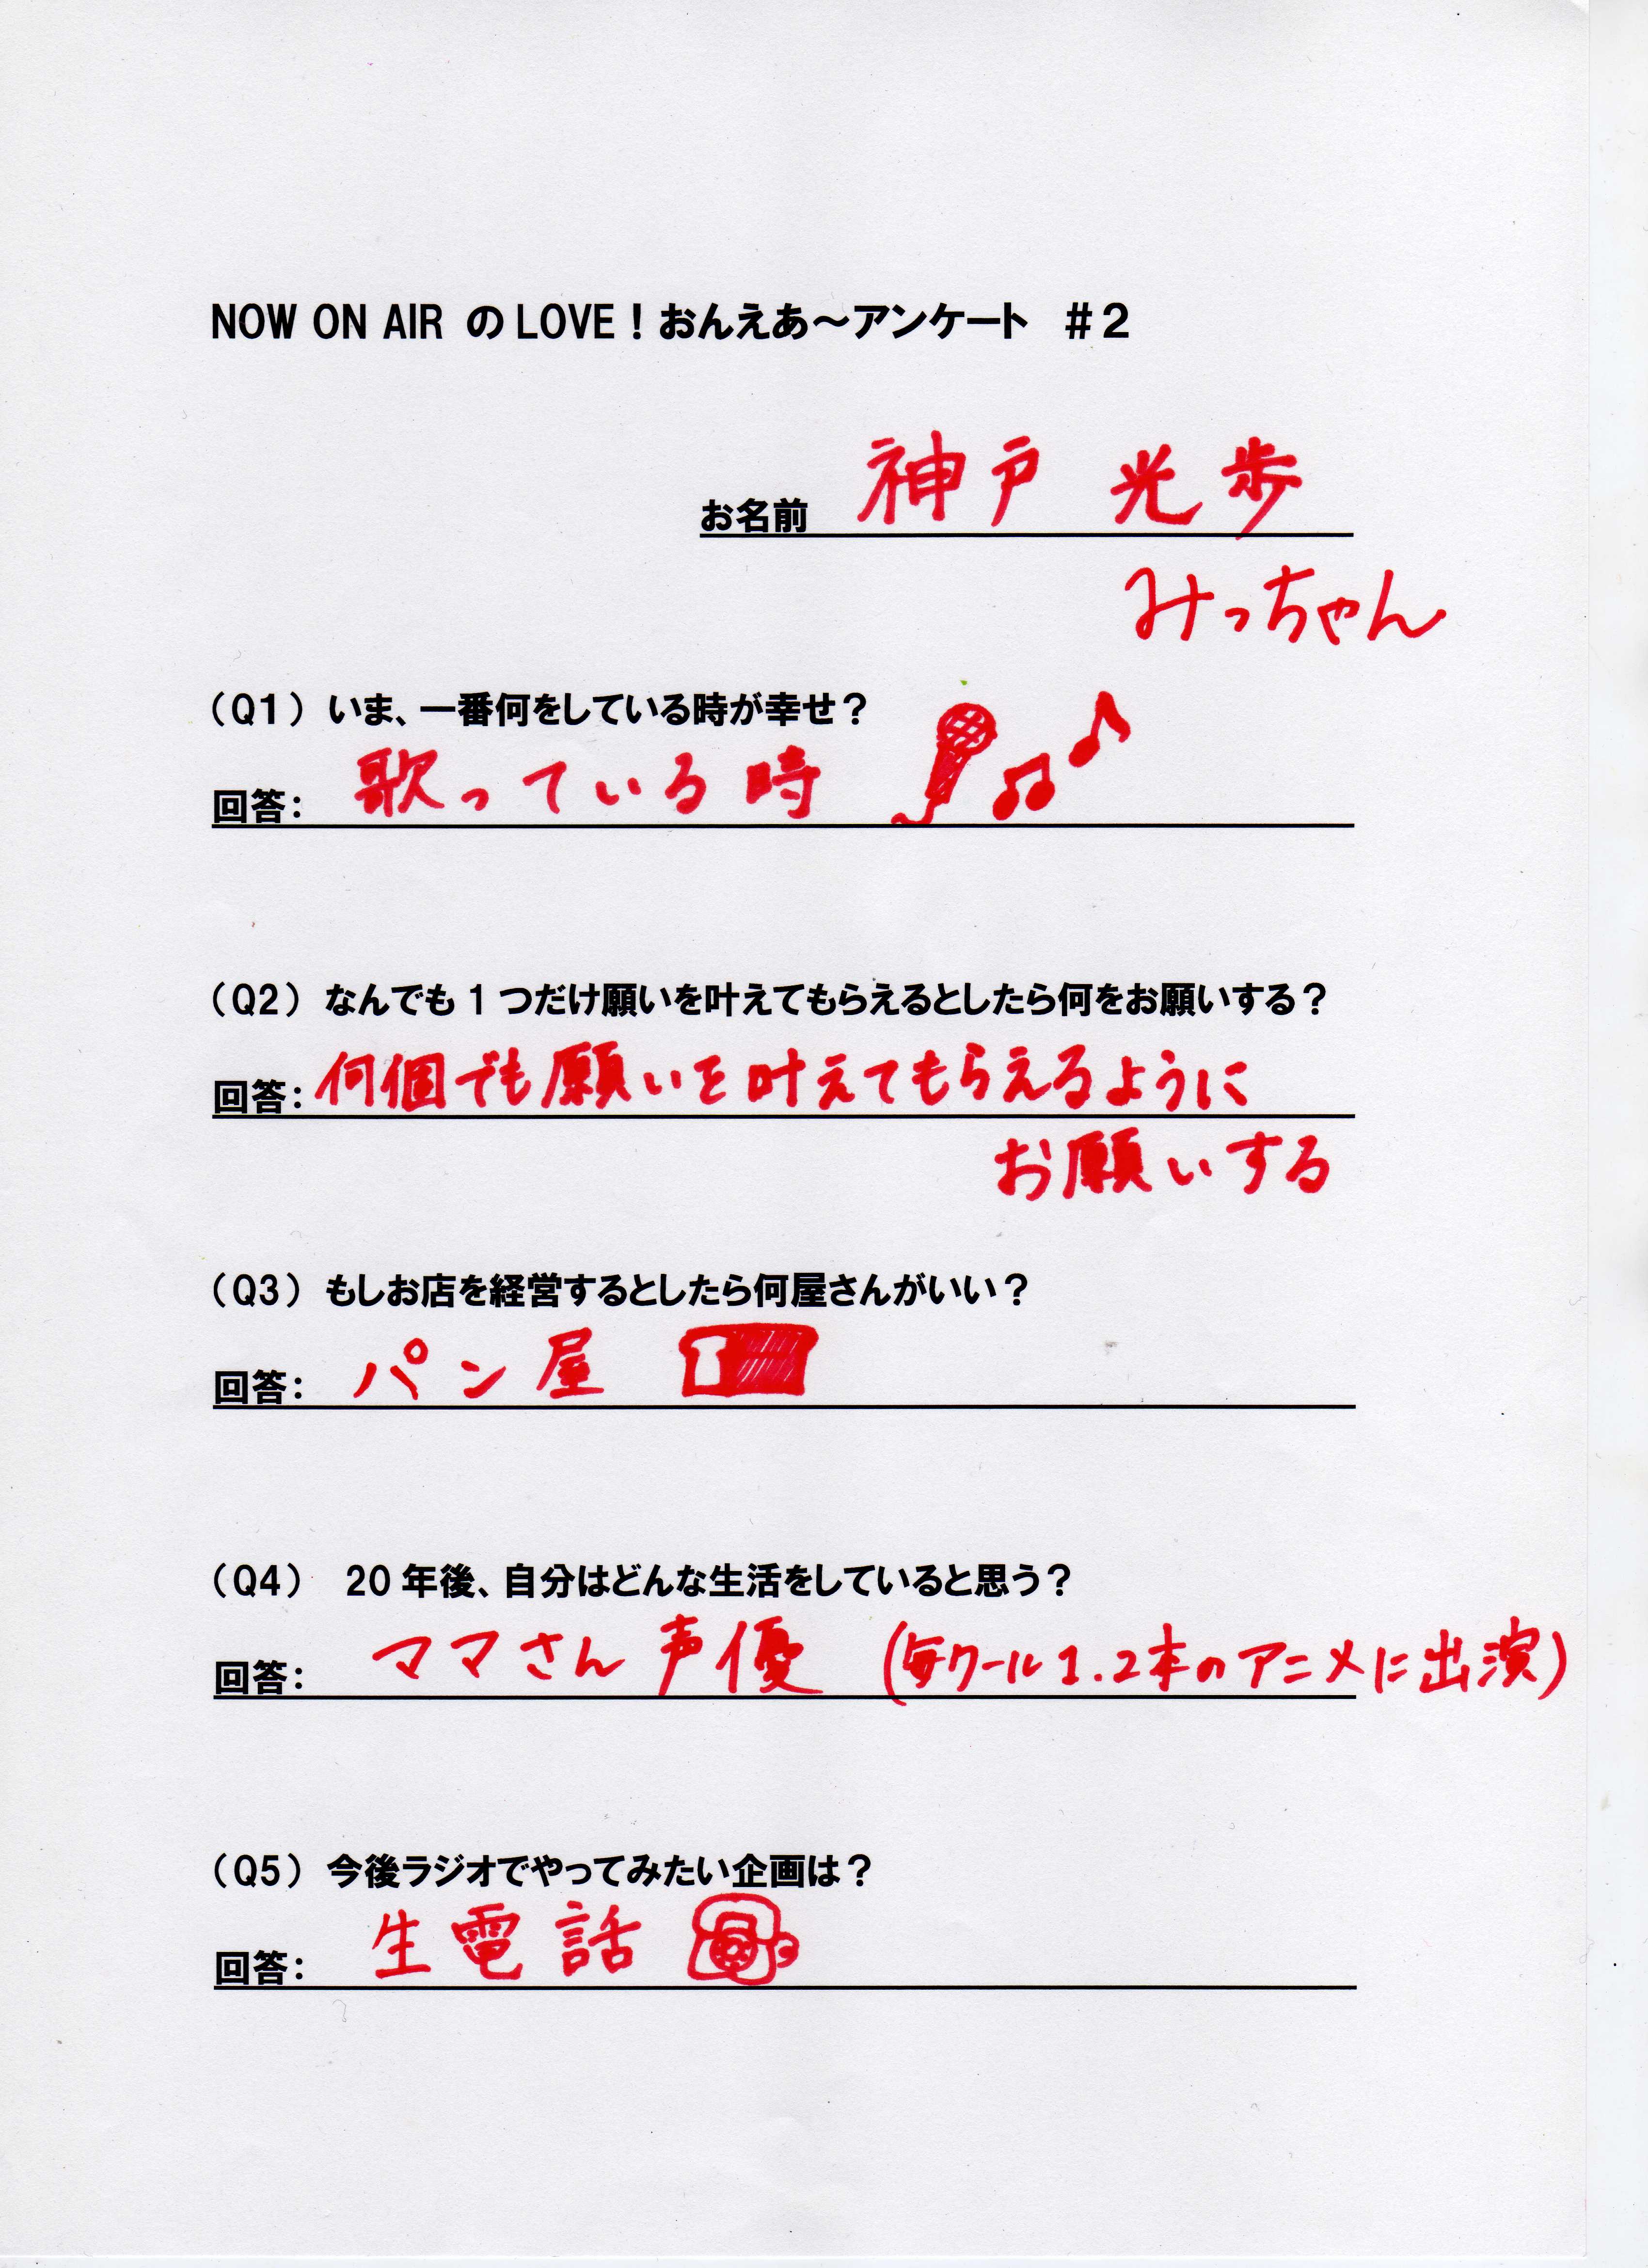 NOW ON AIR のLOVE！おんえあ～アンケート　＃２
お名前 神戸 光歩
みっちゃん
（Q1）いま、一番何をしている時が幸せ？
回答： 歌っている時
（Q2）なんでも1つだけ願いを叶えてもらえるとしたら何をお願いする？
回答：何個でも願いを叶えてもらえるように
お願いする
（Q3）もしお店を経営するとしたら何屋さんがいい？
回答： パン屋
（Q4） 20年後、自分はどんな生活をしていると思う？
回答： ママさん声優 (毎クール1.2本のアニメに出演)
（Q5）今後ラジオでやってみたい企画は？
回答： 生電話